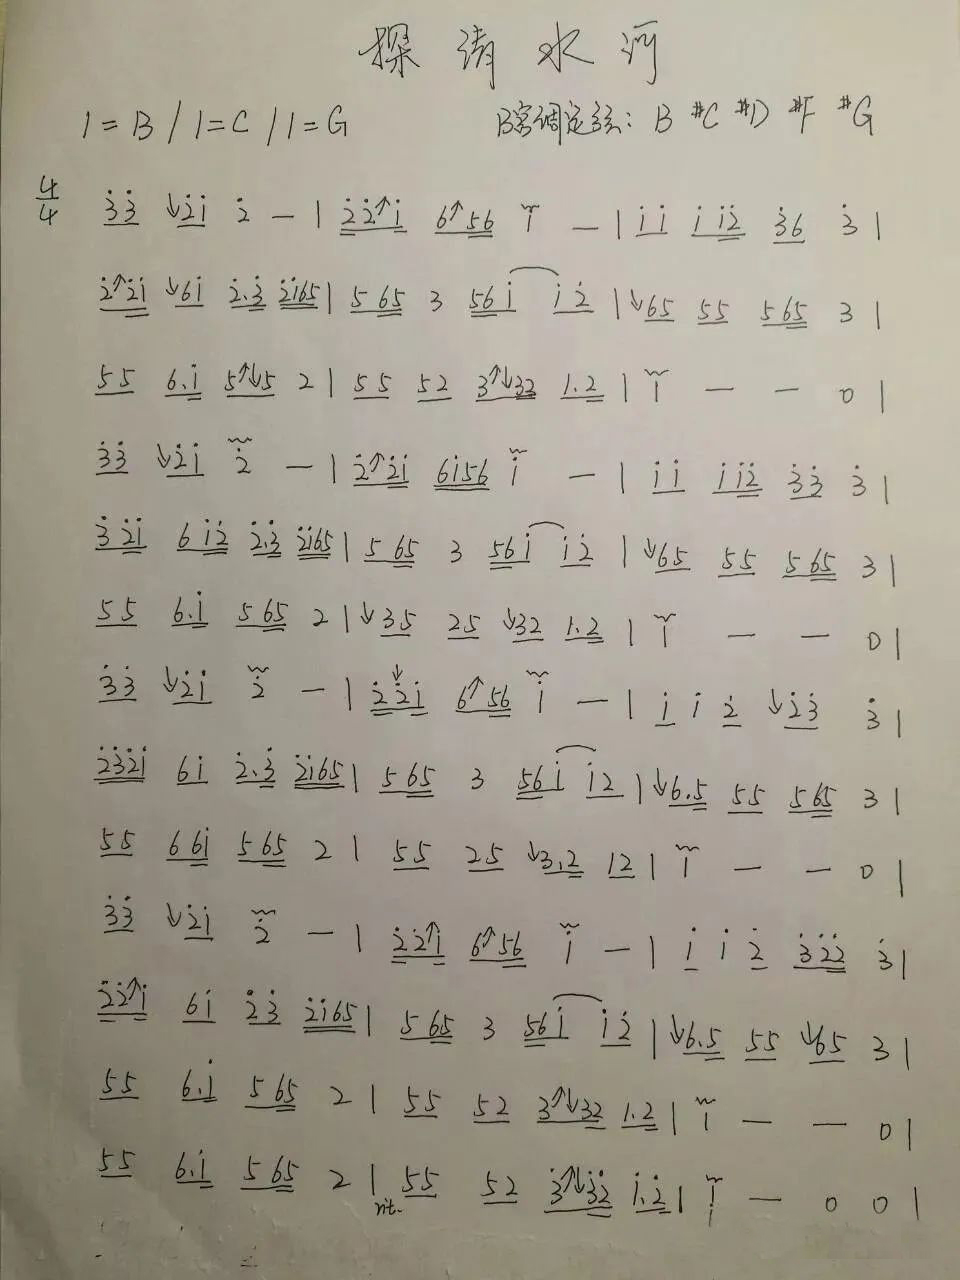 探清水河
1=B / 1=C / 1=G B宫调定弦: B #C #D #F #G
4/4 3̇3̇ ↓2̇1̇ 2̇ — | 2̇2̇↑1̇ 6↑56 1̇ — | 1̇1̇ 1̇1̇2̇ 3̇6 3̇ |
2̇↑2̇1̇ ↓61̇ 2̇.3̇ 2̇1̇65 | 565 3 561̇ 1̇2̇ | ↓65 55 565 3 |
55 6.1̇ 5↑↓5 2 | 55 52 3↑↓32 1.2 | 1 — — 0 |
3̇3̇ ↓2̇1̇ 2̇ — | 2̇↑2̇1̇ 61̇56 1̇ — | 1̇1̇ 1̇1̇2̇ 3̇3̇ 3̇ |
3̇2̇1̇ 61̇2̇ 2̇.3̇ 2̇1̇65 | 565 3 561̇ 1̇2̇ | ↓65 55 565 3 |
55 6.1̇ 565 2 | ↓35 25 ↓32 1.2 | 1 — — 0 |
3̇3̇ ↓2̇1̇ 2̇ — | 2̇↓2̇1̇ 6↑56 1̇ — | 1̇ 1̇ 2̇ ↓2̇3̇ 3̇ |
2̇3̇2̇1̇ 61̇ 2̇.3̇ 2̇1̇65 | 565 3 561̇ 1̇2 | ↓6.5 55 565 3 |
55 661̇ 565 2 | 55 25 ↓3.2 12 | 1 — — 0 |
3̇3̇ ↓2̇1̇ 2̇ — | 2̇2̇↑1̇ 6↑56 1̇ — | 1̇ 1̇ 2̇ 3̇2̇2̇ 3̇ |
2̇2̇↑1̇ 61̇ 2̇3̇ 2̇1̇65 | 565 3 561̇ 1̇2̇ | ↓6.5 55 ↓65 3 |
55 6.1̇ 565 2 | 55 52 3↑↓32 1.2 | 1 — — 0 |
55 6.1̇ 565 2 | 55 52 3̇↑↓3̇2̇ 1̇.2̇ | 1̇ — 0 0 |
rit.